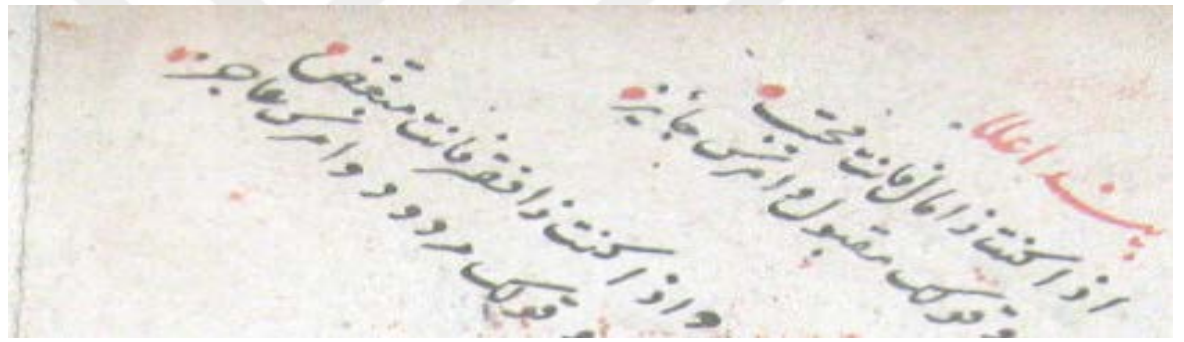 پند اعلا
اذا كنت ذا مال فانت محب
و قولك مقبول و امرك جايز
و اذا كنت ذا فقر فانت مبغض
و قولك مردود و امرك عاجز